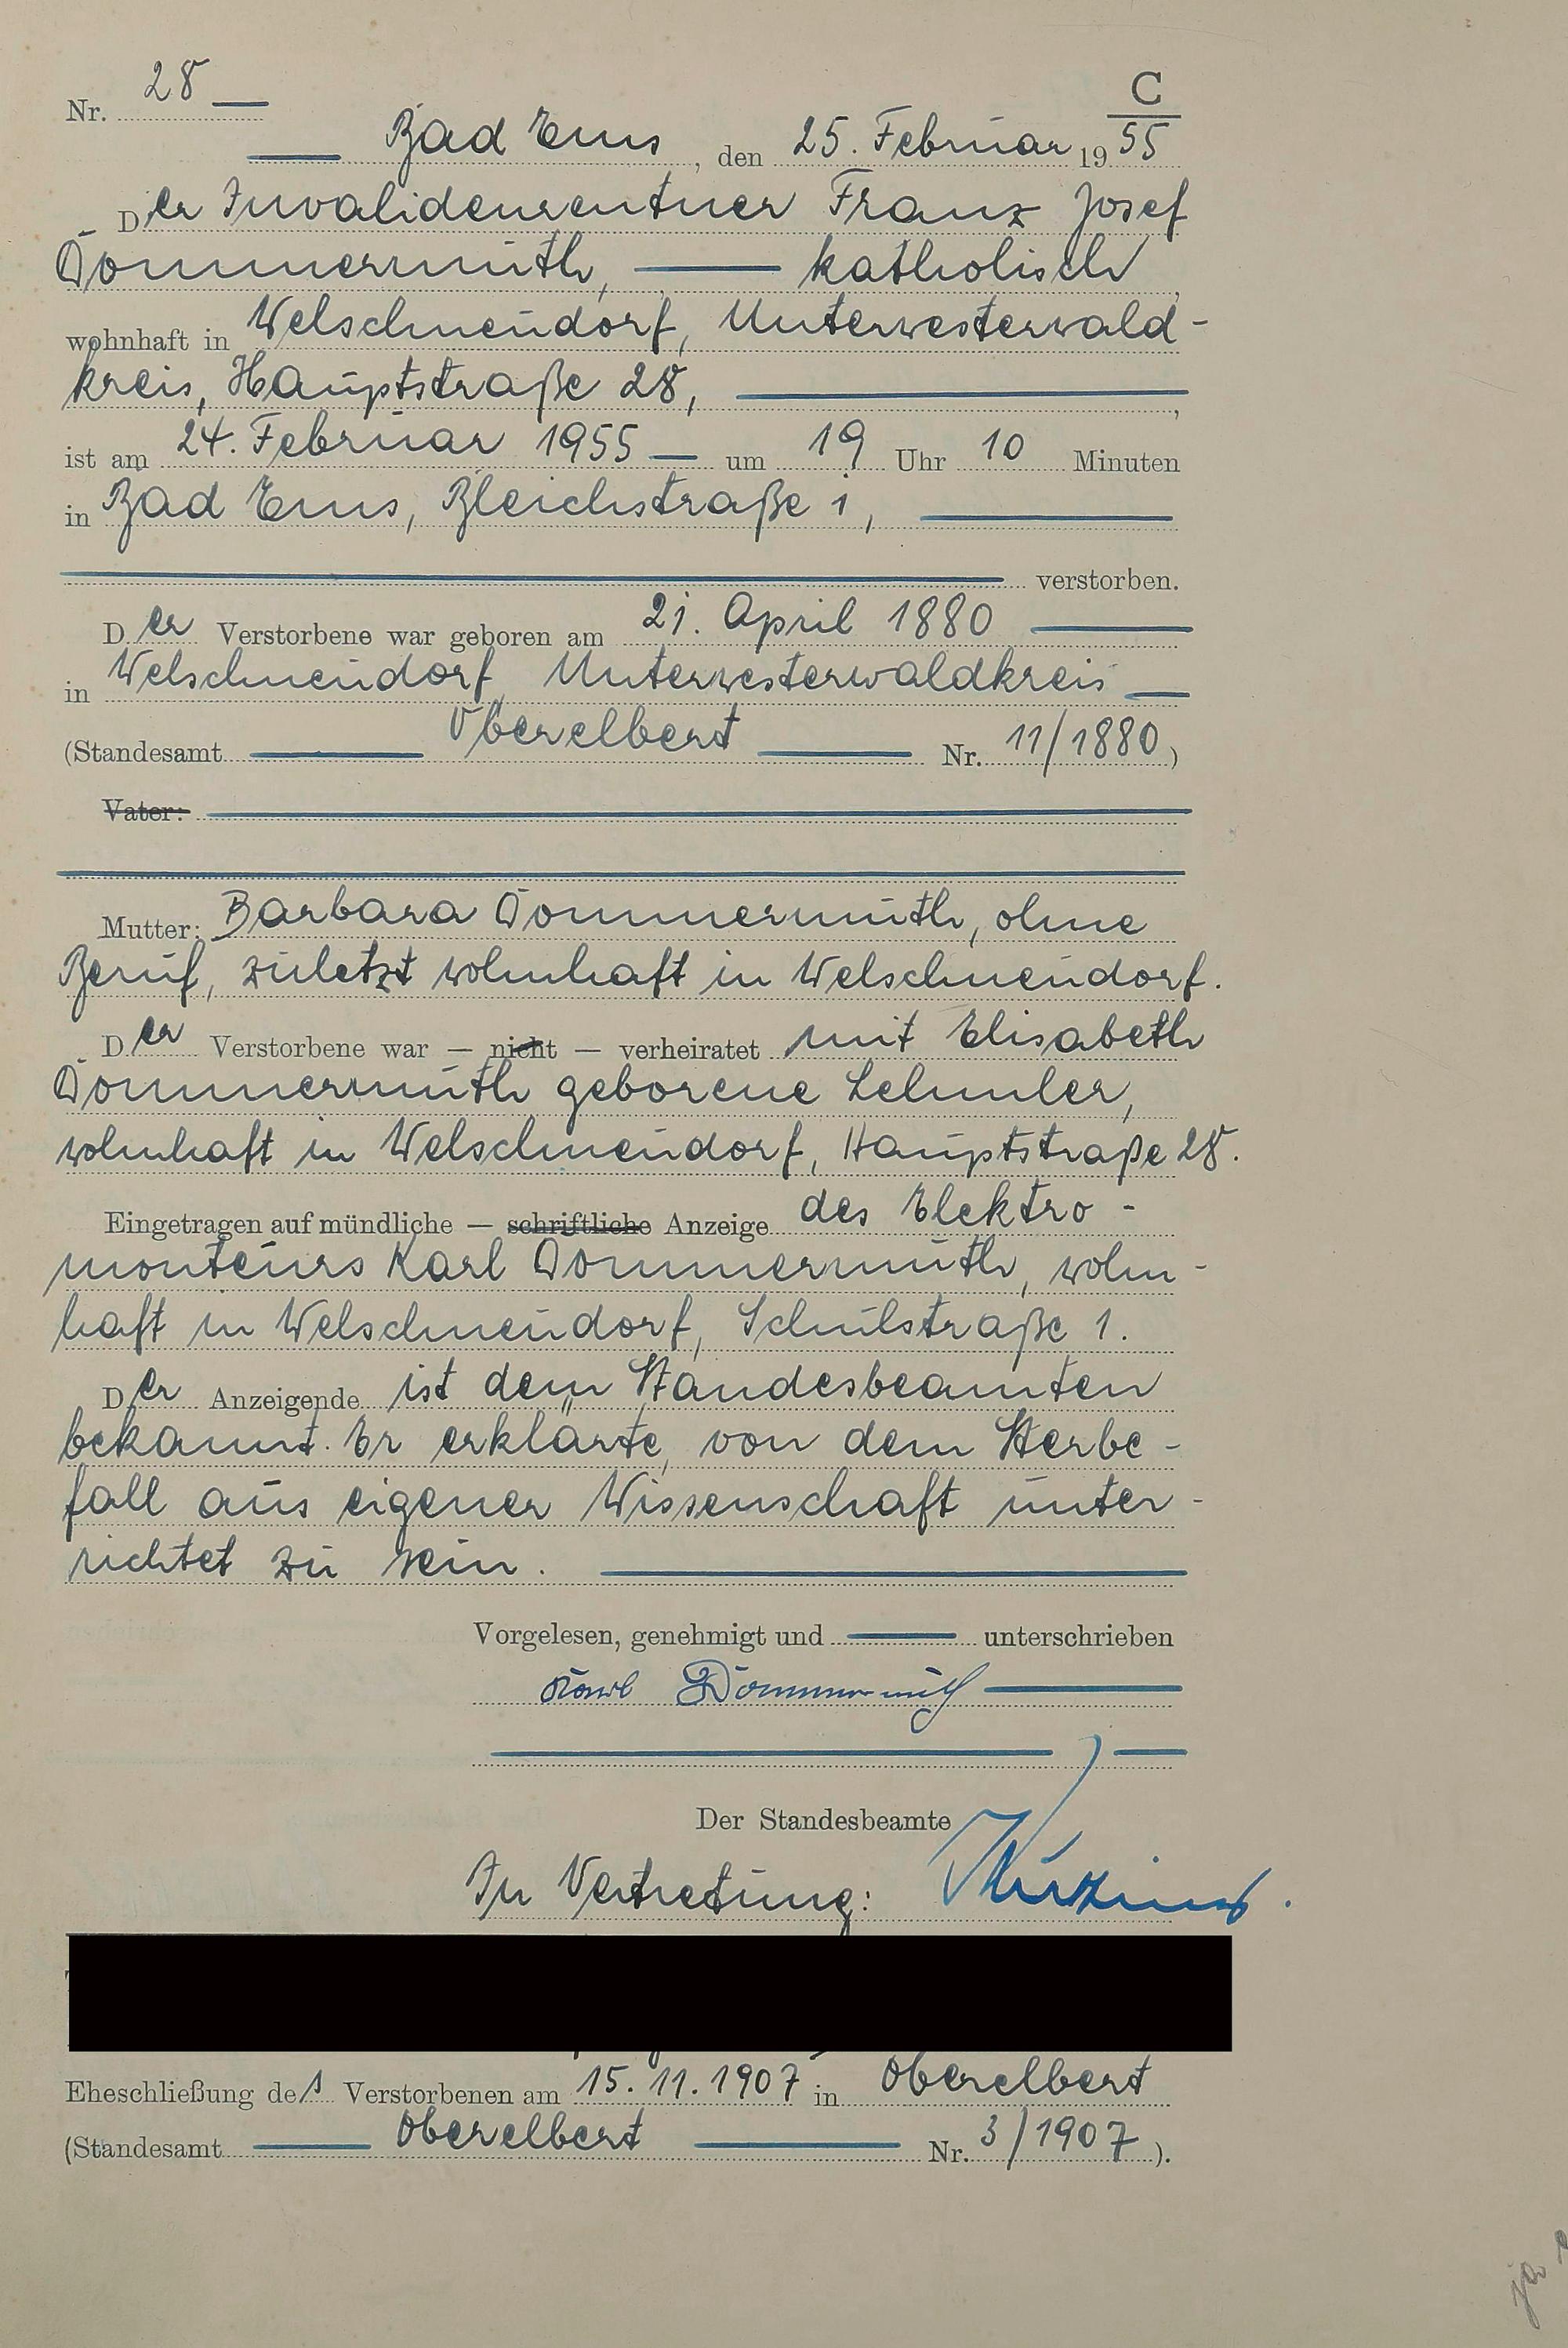 Nr. 28
C
Bad Ems, den 25. Februar 1955
Der Invalidenrentner Franz Josef
Dommermuth, katholisch,
wohnhaft in Welschneudorf, Unterwesterwald-
kreis, Hauptstraße 28,
ist am 24. Februar 1955 um 19 Uhr 10 Minuten
in Bad Ems, Bleichstraße 1,
verstorben.
Der Verstorbene war geboren am 21. April 1880
in Welschneudorf, Unterwesterwaldkreis
(Standesamt Oberelbert Nr. 11/1880)
Vater:
Mutter: Barbara Dommermuth, ohne
Beruf, zuletzt wohnhaft in Welschneudorf.
Der Verstorbene war — nicht — verheiratet mit Elisabeth
Dommermuth geborene Lehmler,
wohnhaft in Welschneudorf, Hauptstraße 28.
Eingetragen auf mündliche — schriftliche Anzeige des Elektro-
monteurs Karl Dommermuth, wohn-
haft in Welschneudorf, Schulstraße 1.
Der Anzeigende ist dem Standesbeamten
bekannt. Er erklärte, von dem Sterbe-
fall aus eigener Wissenschaft unter-
richtet zu sein.
Vorgelesen, genehmigt und unterschrieben
Karl Dommermuth
Der Standesbeamte
In Vertretung:
Eheschließung des Verstorbenen am 15.11.1907 in Oberelbert
(Standesamt Oberelbert Nr. 3/1907).